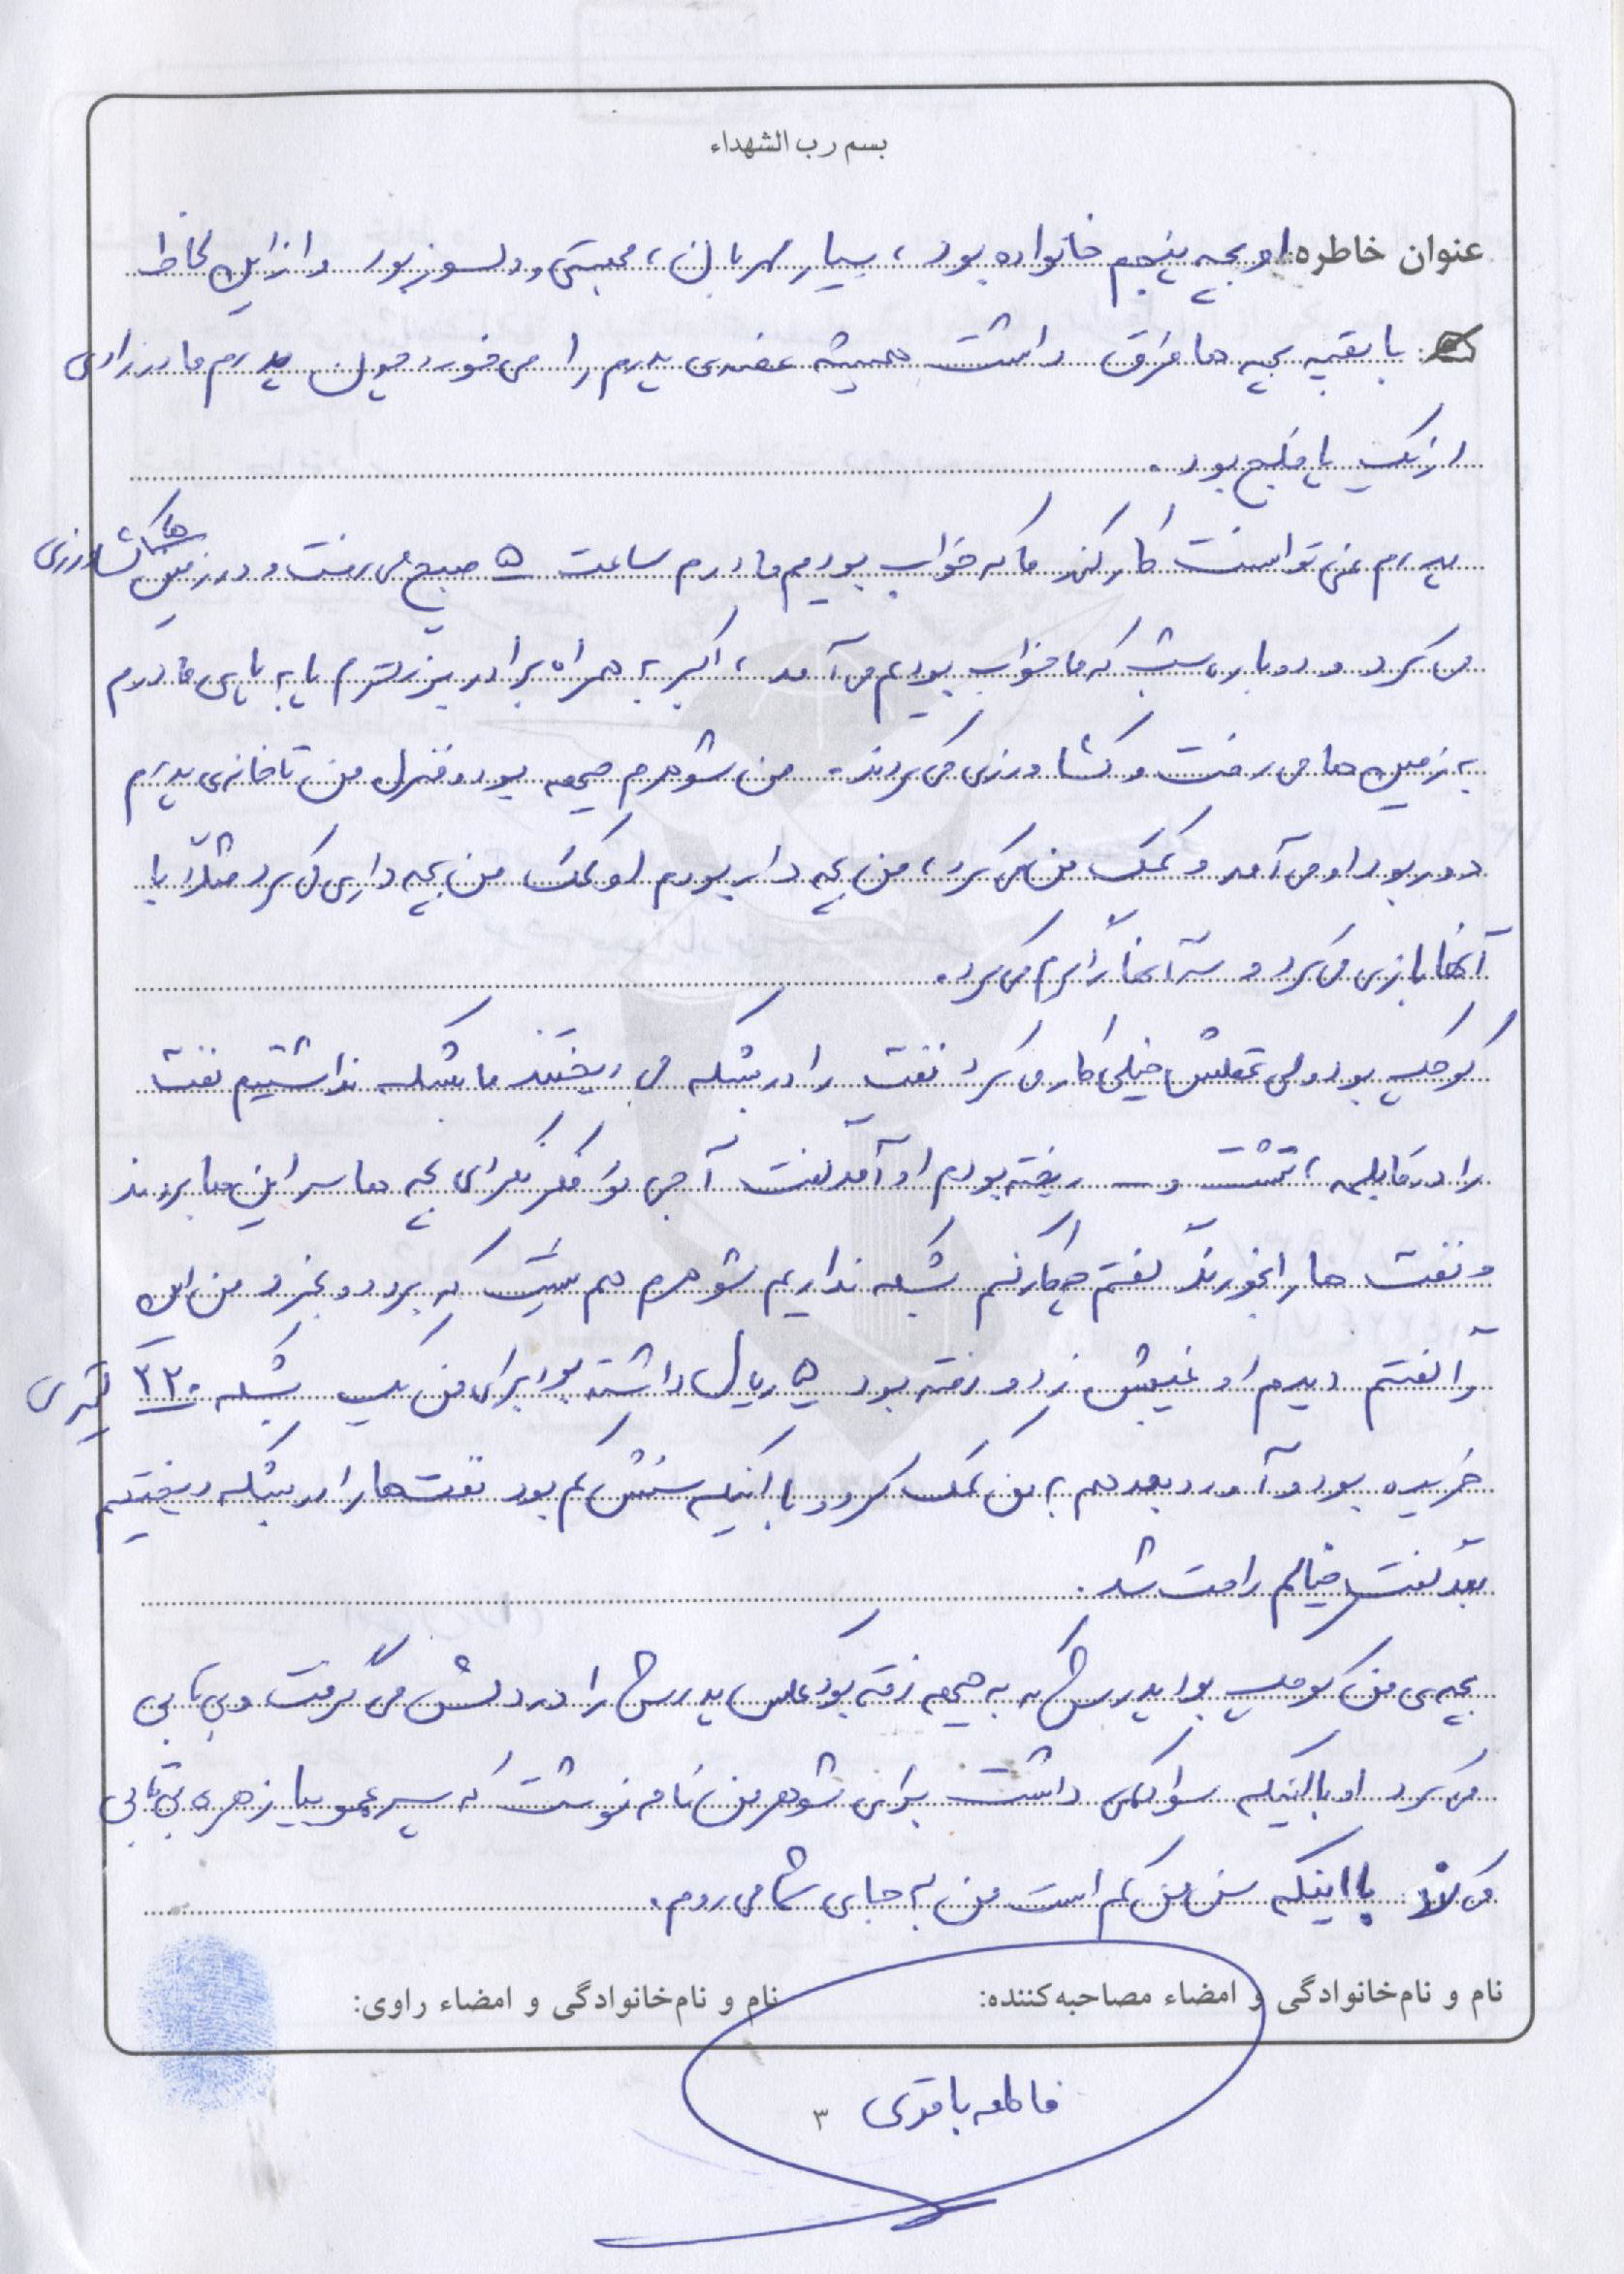 بسم رب الشهداء
عنوان خاطره: او بچه پنجم خانواده بود، بسیار مهربان، محبتی و دلسوز بود و از این لحاظ
با بقیه بچه ها فرق داشت همیشه غصه‌ی پدرم را می خورد چون پدرم مادرزادی
از یک پا فلج بود.
پدرم نمی توانست کار کند ما که خواب بودیم مادرم ساعت ۵ صبح می رفت و در زمین ها کشاورزی
می کرد و دوباره شب که ما خواب بودیم می آمد، اکبر به همراه برادر بزرگترم پا به پای مادرم
به زمین ها می رفت و کشاورزی می کردند. من شوهرم جبهه بود و منزل من تا خانه‌ی پدرم
دور بود او می آمد و کمک من می کرد، من بچه دار بودم او کمک من بچه داری می کرد مثلاً با
آنها بازی می کرد و آنها را آرام می کرد.
کوچک بود ولی عقلش خیلی کار می کرد نفت را در بشکه می ریختند ما بشکه نداشتیم نفت
را در قابلمه، تشت و ... ریخته بودم او آمد گفت آجی تو فکر نکردی بچه ها سر این ها بروند
و نفت ها را بخورند گفتم چکار کنم بشکه نداریم شوهرم هم نیست که برود و بخرد من این
را گفتم دیدم او غیبش زد و رفته بود ۵ ریال داشته بود برای من یک بشکه ۲۲۰ لیتری
خریده بود و آورد بعد هم به من کمک کرد و با اینکه سنش کم بود نفت ها را در بشکه ریختیم
بعد گفت خیالم راحت شد.
بچه‌ی من کوچک بود پدرش که به جبهه رفته بود عکس پدرش را در دستش می گرفت و بی تابی
می کرد او با اینکه سواد کمی داشت برای شوهر من نامه نوشت که پسر عمو بیا زهره بی تابی
می کند با اینکه سن من کم است من به جای شما می روم.
نام و نام‌خانوادگی و امضاء مصاحبه‌کننده:
نام و نام‌خانوادگی و امضاء راوی:
فاطمه باقری
۳